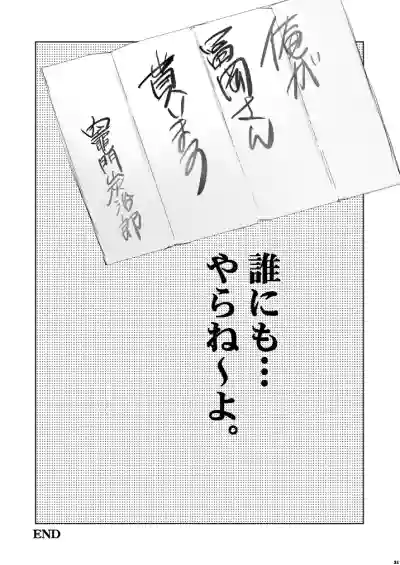 俺が
冨岡さん
貰います
竈門炭治郎
誰にも…
やらね～よ。
END